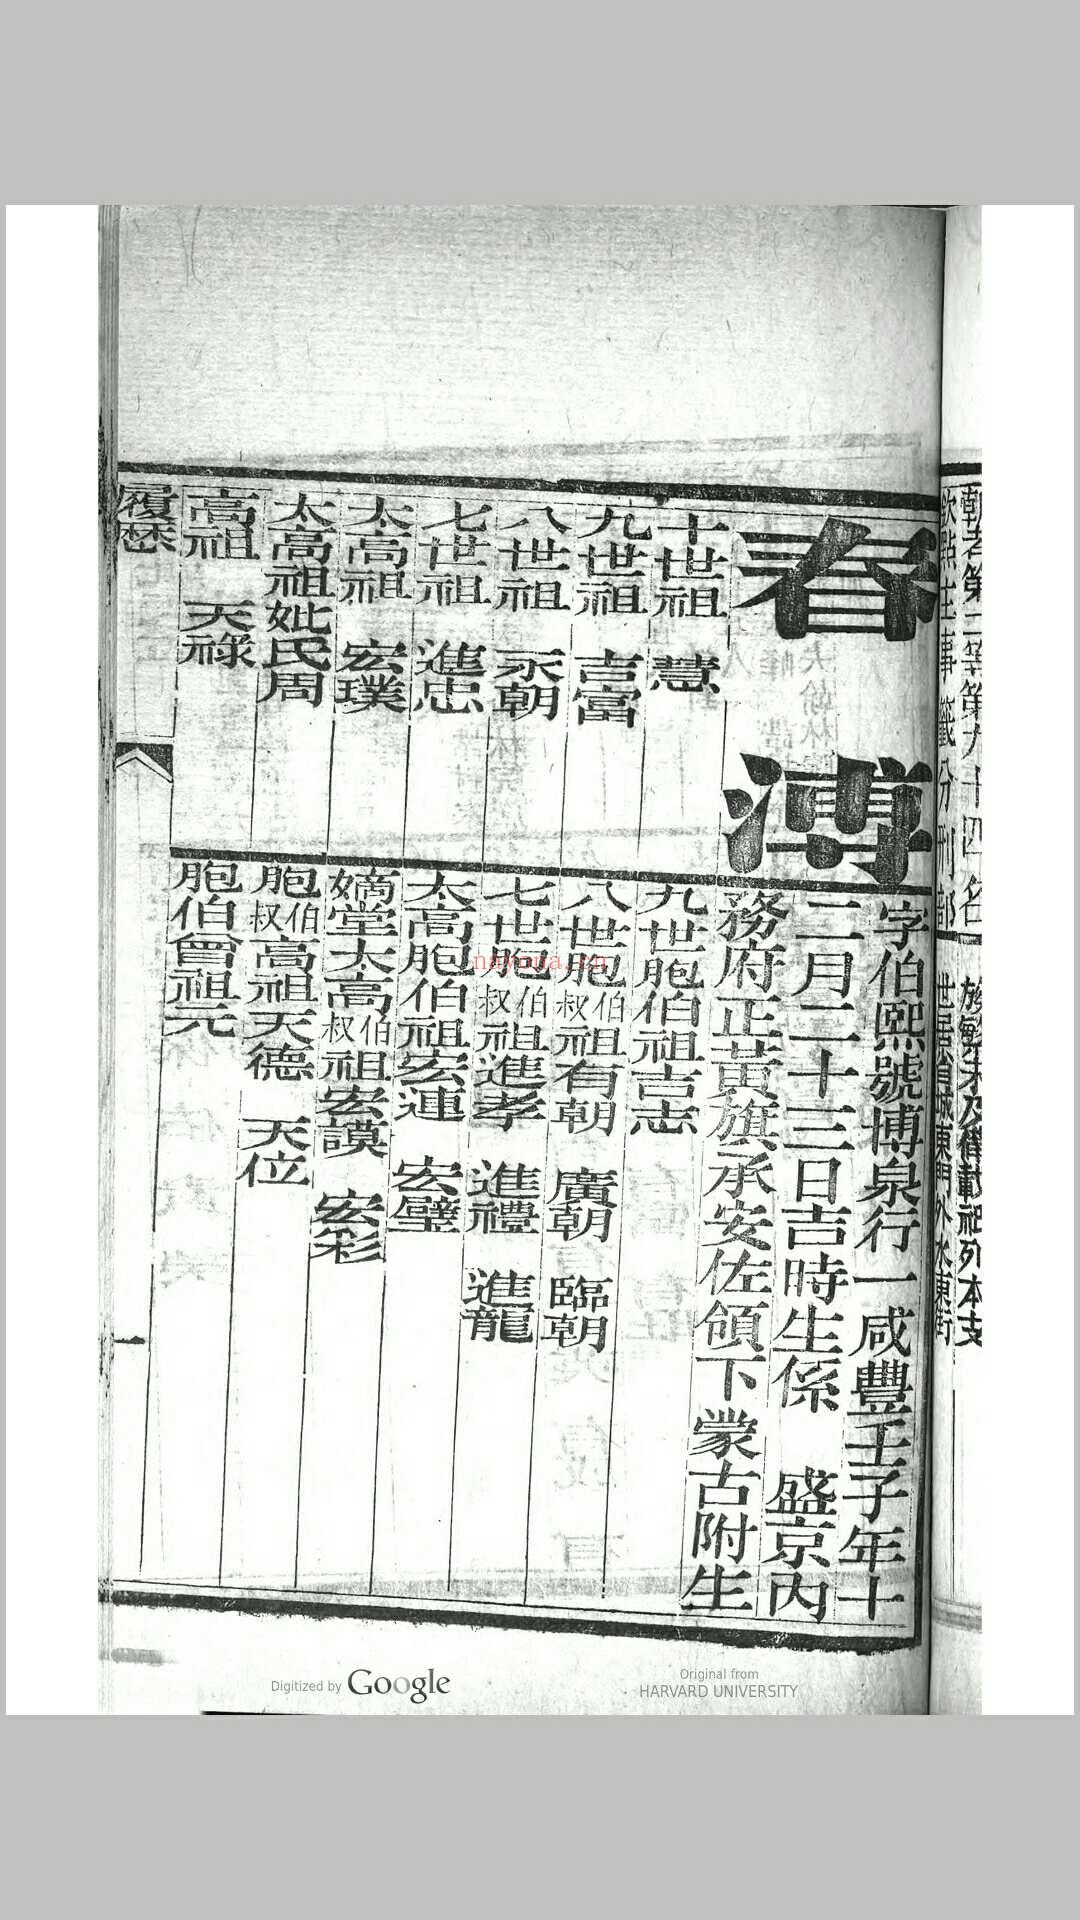 朝考第二等第九十四名
欽點主事籤分刑部
族繁不及備載祗列本支
世居省城東門入水東街
春溥
字伯熙號博泉行一咸豐壬子年十
二月二十三日吉時生係 盛京內
務府正黃旗承安佐領下蒙古附生
十世祖 慧
九世祖 吉當
八世祖 永朝
七世祖 進忠
太高祖 宏璞
太高祖妣氏周
高祖 天祿
履歷
九世胞伯祖吉志
八世胞叔伯祖有朝 廣朝 臨朝
七世胞叔伯祖進孝 進禮 進龍
太高胞伯祖宏連 宏璧
嫡堂太高叔伯祖宏謨 宏彩
胞叔伯高祖天德 天位
胞伯曾祖元
一
nayona.cn
Digitized by Google
Original from
HARVARD UNIVERSITY